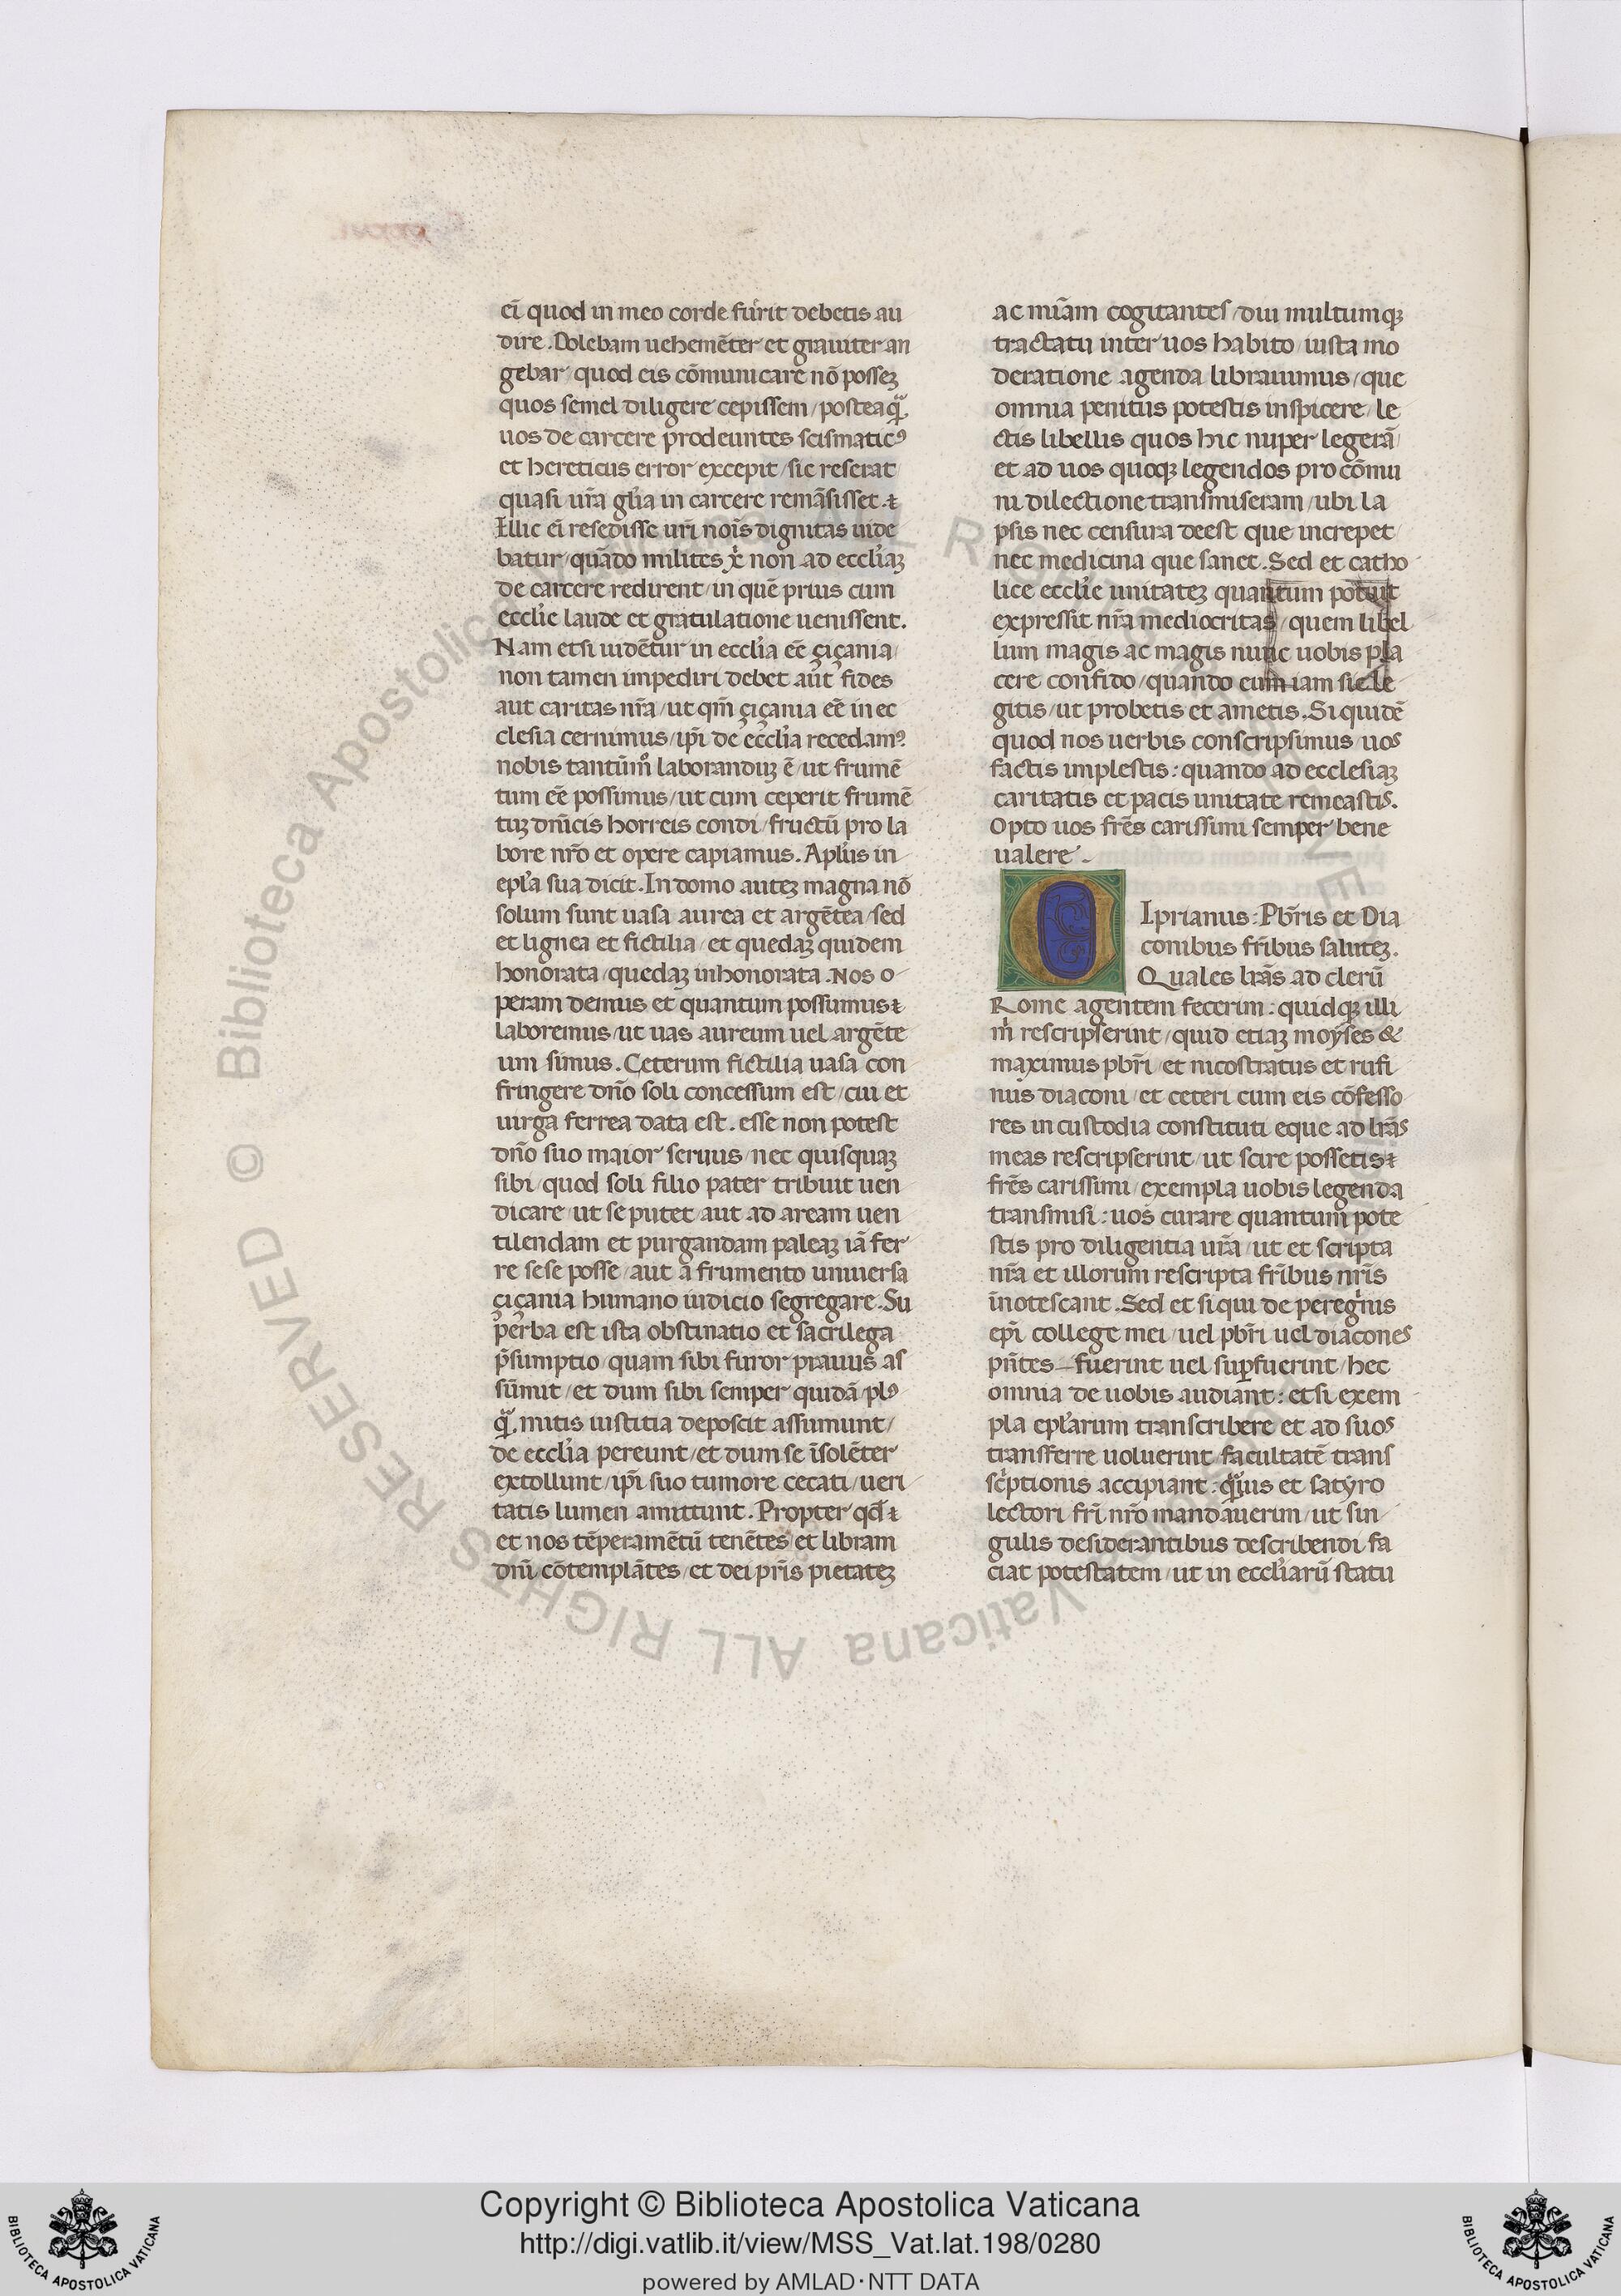 eī quod in meo corde fuͥrit debetis au
dire. Dolebam uehemēter et grauiter an
gebar / quod eis cōmunicare nō possez
quos semel diligere cepissem / posteaq̄ᷓ.
uos de carcere prodeuntes scismaticꝰ
et hereticus error excepit / sic reserat
quasi ur̄a gl̄ia in carcere remāsisset.
Illic eī resedisse ur̄i nois̄ dignitas uide
batur / quādo milites xͥ non ad eccl̄iaz
de carcere redirent / in quē prius cum
eccl̄ie laude et gratulatione uenissent.
Nam etsi uidētur in eccl̄ia eē çiçania /
non tamen impediri debet aūt fides
aut caritas nr̄a / ut qm̄ çiçania eē in ec
clesia cernimus / ip̄i de eccl̄ia recedamꝰ.
nobis tantūmͦ laboranduz ē / ut frumē
tum eē possimus / ut cum ceperit frumē
tuz dn̄icis horreis condi / fructū pro la
bore nr̄o et opere capiamus. Apl̄us in
epl̄a sua dicit. In domo autez magna nō
solum sunt uasa aurea et argētea / sed
et lignea et fictilia / et quedaz quidem
honorata / quedaz inhonorata. Nos o-
peram demus et quantum possumus
laboremus / ut uas aureum uel argēte
um simus. Ceterum fictilia uasa con
fringere dn̄o soli concessum est / cui et
uirga ferrea data est. esse non potest
dn̄o suo maior seruus / nec quisquaz
sibi / quod soli filio pater tribuit uen
dicare / ut se putet / aut ad aream uen
tilendam et purgandam paleaz iā fer
re sese posse / aut a frumento uniuersa
çiçania humano iudicio segregare. Su
perba est ista obstinatio et sacrilega
p̄sumptio / quam sibi furor prauus as
sūmit / et dum sibi semper quidā plꝰ
q̄ᷓ. mitis iustitia deposcit assumunt /
de eccl̄ia pereunt / et dum se īsolēter
extollunt / ip̄i suo tumore cecati / ueri
tatis lumen amittunt. Propter qd̄
et nos tēperamētū tenētes / et libram
dn̄i cōtemplātes / et dei pr̄is pietatez
ac mi̅am cogitantes / diu multumqꝫ
tractatu inter uos habito / iusta mo
deratione agenda librauimus / que
omnia penitus potestis inspicere / le
ctis libellis quos hic nuper legerā /
et ad uos quoqꝫ legendos pro cōmu
ni dilectione transmiseram / ubi la
psis nec censura deest que increpet /
nec medicina que sanet. Sed et catho
lice eccl̄ie unitatez quantum potuit
expressit nr̄a mediocritas / quem libel
lum magis ac magis nunc uobis pla
cere confido / quando eum iam sic le
gitis / ut probetis et ametis. Siquidē
quod nos uerbis conscripsimus / uos
factis implestis: quando ad ecclesiaz
caritatis et pacis unitate remeastis.
Opto uos fr̄es carissimi semper bene
ualere.
CIprianus: Pbr̄is et Dia
conibus fr̄ibus salutez.
Quales lr̄as ad clerū
Rome agentem fecerim: quidqꝫ illi
mͥ rescripserint / quid etiaz moyses &
maximus pbr̄i / et nicostratus et rufi
nus diaconi / et ceteri cum eis cōfesso
res in custodia constituti eque ad lr̄as
meas rescripserint / ut scire possetis
fr̄es carissimi / exempla uobis legenda
transmisi: uos curare quantum pote
stis pro diligentia ur̄a / ut et scripta
nr̄a et illorum rescripta fr̄ibus nr̄is
īnotescant. Sed et si qui de peregͥnis
ep̄i college mei / uel pbr̄i uel diacones
pn̄tes fuerint uel suꝑfuerint / hec
omnia de uobis audiant: et si exem
pla epl̄arum transcribere et ad suos
transferre uoluerint / facultatē trans
scͥptionis accipiant: q̄ᷓuis et satyro
lectori fr̄i nr̄o mandauerim / ut sin
gulis desiderantibus describendi fa
ciat potestatem / ut in eccl̄iarū statu
© Biblioteca Apostolica Vaticana ALL RIGHTS RESERVED
BIBLIOTECA APOSTOLICA VATICANA
Copyright © Biblioteca Apostolica Vaticana
http://digi.vatlib.it/view/MSS_Vat.lat.198/0280
powered by AMLAD·NTT DATA
BIBLIOTECA APOSTOLICA VATICANA